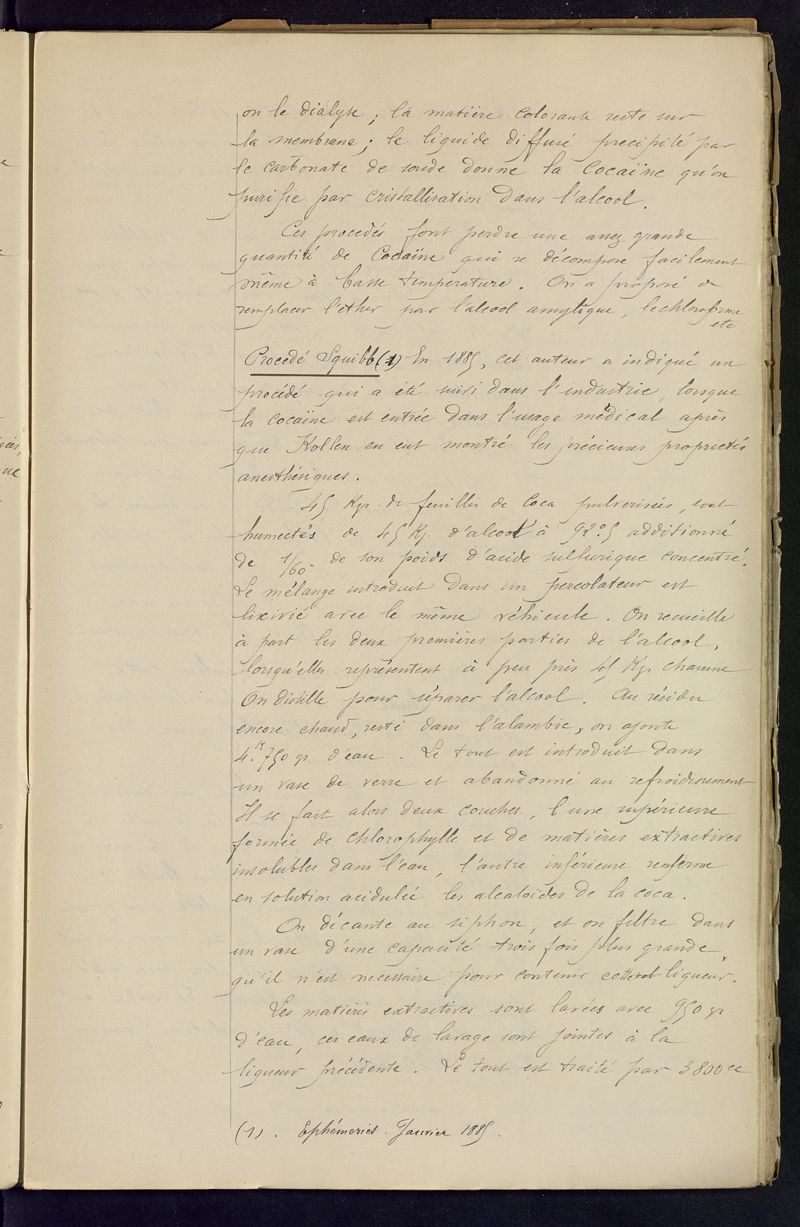 on le dialyse ; la matière colorante reste sur
la membrane ; le liquide diffusé précipité par
le carbonate de soude donne la Cocaïne qu'on
purifie par cristallisation dans l'alcool.
Ces procédés font perdre une assez grande
quantité de Cocaïne qui se décompose facilement
même à basse température. On a proposé de
remplacer l'éther par l'alcool amylique, le chloroforme
etc
Procédé Squibb (1) En 1885, cet auteur a indiqué un
procédé qui a été suivi dans l'industrie, lorsque
la cocaïne est entrée dans l'usage médical après
que Kollen en eut montré les précieuses propriétés
anesthésiques.
45 Kgr. de feuilles de Coca pulvérisées, sont
humectés de 45 Kg. d'alcool à 92°5 additionné
de 1/60. de son poids d'acide sulfurique concentré.
Le mélange introduit dans un percolateur est
lixivié avec le même véhicule. On recueille
à part les deux premières parties de l'alcool,
lorsqu'elles représentent à peu près 45 Kgr chacune
On distille pour séparer l'alcool. Au résidu
encore chaud, resté dans l'alambic, on ajoute
4.750 gr d'eau. Le tout est introduit dans
un vase de verre et abandonné au refroidissement
Il se fait alors deux couches, l'une supérieure
formée de chlorophylle et de matières extractives
insolubles dans l'eau, l'autre inférieure renferme
en solution acidulée les alcaloïdes de la coca.
On décante au siphon, et on filtre dans
un vase d'une capacité trois fois plus grande
qu'il n'est nécessaire pour contenir cette liqueur.
Les matières extractives sont lavées avec 950 gr
d'eau, ces eaux de lavage sont jointes à la
liqueur précédente. Le tout est traité par 3800 cc
(1). Ephémeries. Janvier 1885.